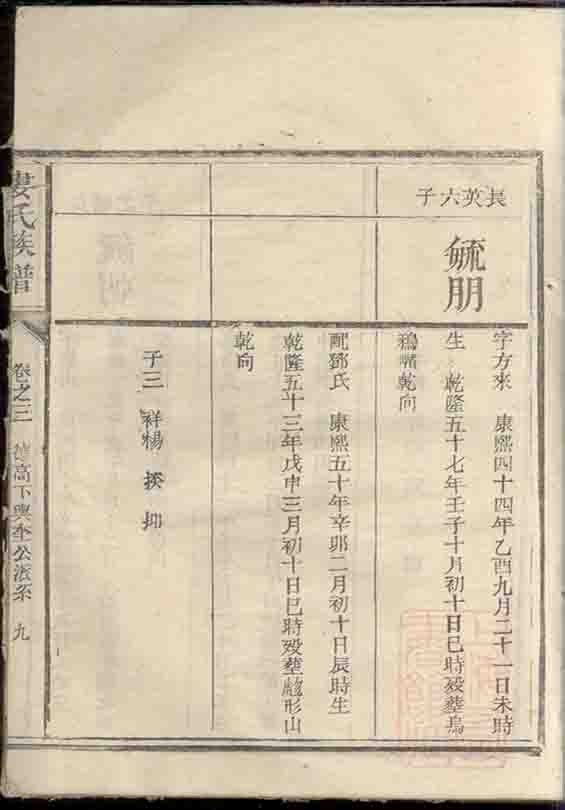 長英六子
毓朋
字方來 康熙四十四年乙酉九月二十一日未時
生 乾隆五十七年壬子十月初十日巳時歿塟烏
鴉嘴乾向
配鄧氏 康熙五十年辛卯二月初十日辰時生
乾隆五十三年戊申三月初十日巳時歿塟形山
乾向
子三 祥楊 挨 抑
婁氏族譜
卷之三 高下輿公派系 九